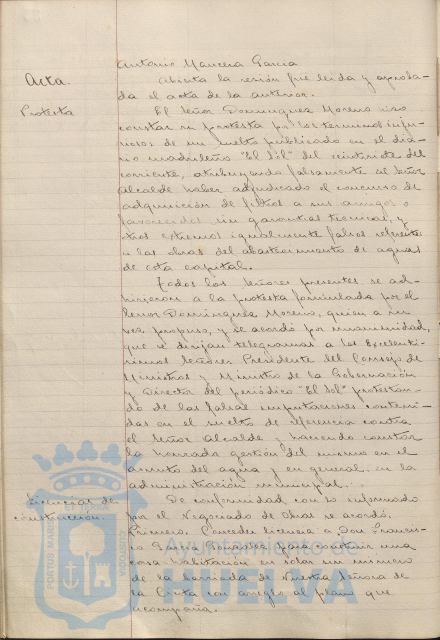 Antonio Mancera García
Acta.
Abierta la sesión fue leida y aproba-
da el acta de la anterior.
Protesta
El Señor Dominguez Moreno hizo
constar su protesta por los terminos inju-
riosos de un suelto publicado en el dia-
rio madrileño "El Sol" del veintiseis del
corriente, atribuyendo falsamente al Señor
Alcalde haber adjudicado el concurso de
adquisición de filtros a sus amigos o
favorecidos, sin garantias técnicas, y
otros extremos igualmente falsos referentes
a las obras del abastecimiento de aguas
de esta capital.
Todos los Señores presentes se ad-
hirieron a la protesta formulada por el
Señor Dominguez Moreno, quien a su
vez propuso, y se acordó por unanimidad,
que se dirijan telegramas a los Excelentí-
simos Señores Presidente del Consejo de
Ministros y Ministro de la Gobernación
y Director del periódico "El Sol" protestan-
do de las falsas imputaciones conteni-
das en el suelto de referencia contra
el Señor Alcalde y haciendo constar
la honrada gestión del mismo en el
asunto del agua y en general, en la
administración municipal.
Licencias de
construcción.
De conformidad con lo informado
por el Negociado de Obras se acordó:
Primero. Conceder licencia a Don Francis-
co García González para construir una
casa habitación en solar sin número
de la barriada de Nuestra Señora de
la Cinta con arreglo al plano que
acompaña.
PORTUS MARIS
ET TERRAE
CUSTODIA
Ayuntamiento de
HUELVA